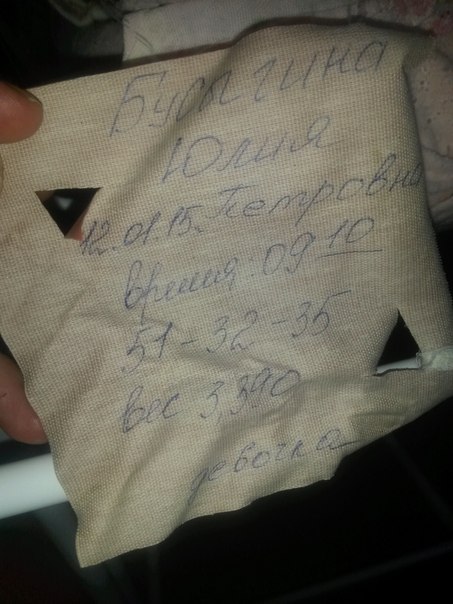 Бусыгина
Юлия
12.01.15. Петровна
время: 09 10
51-32-35
вес 3,390
девочка